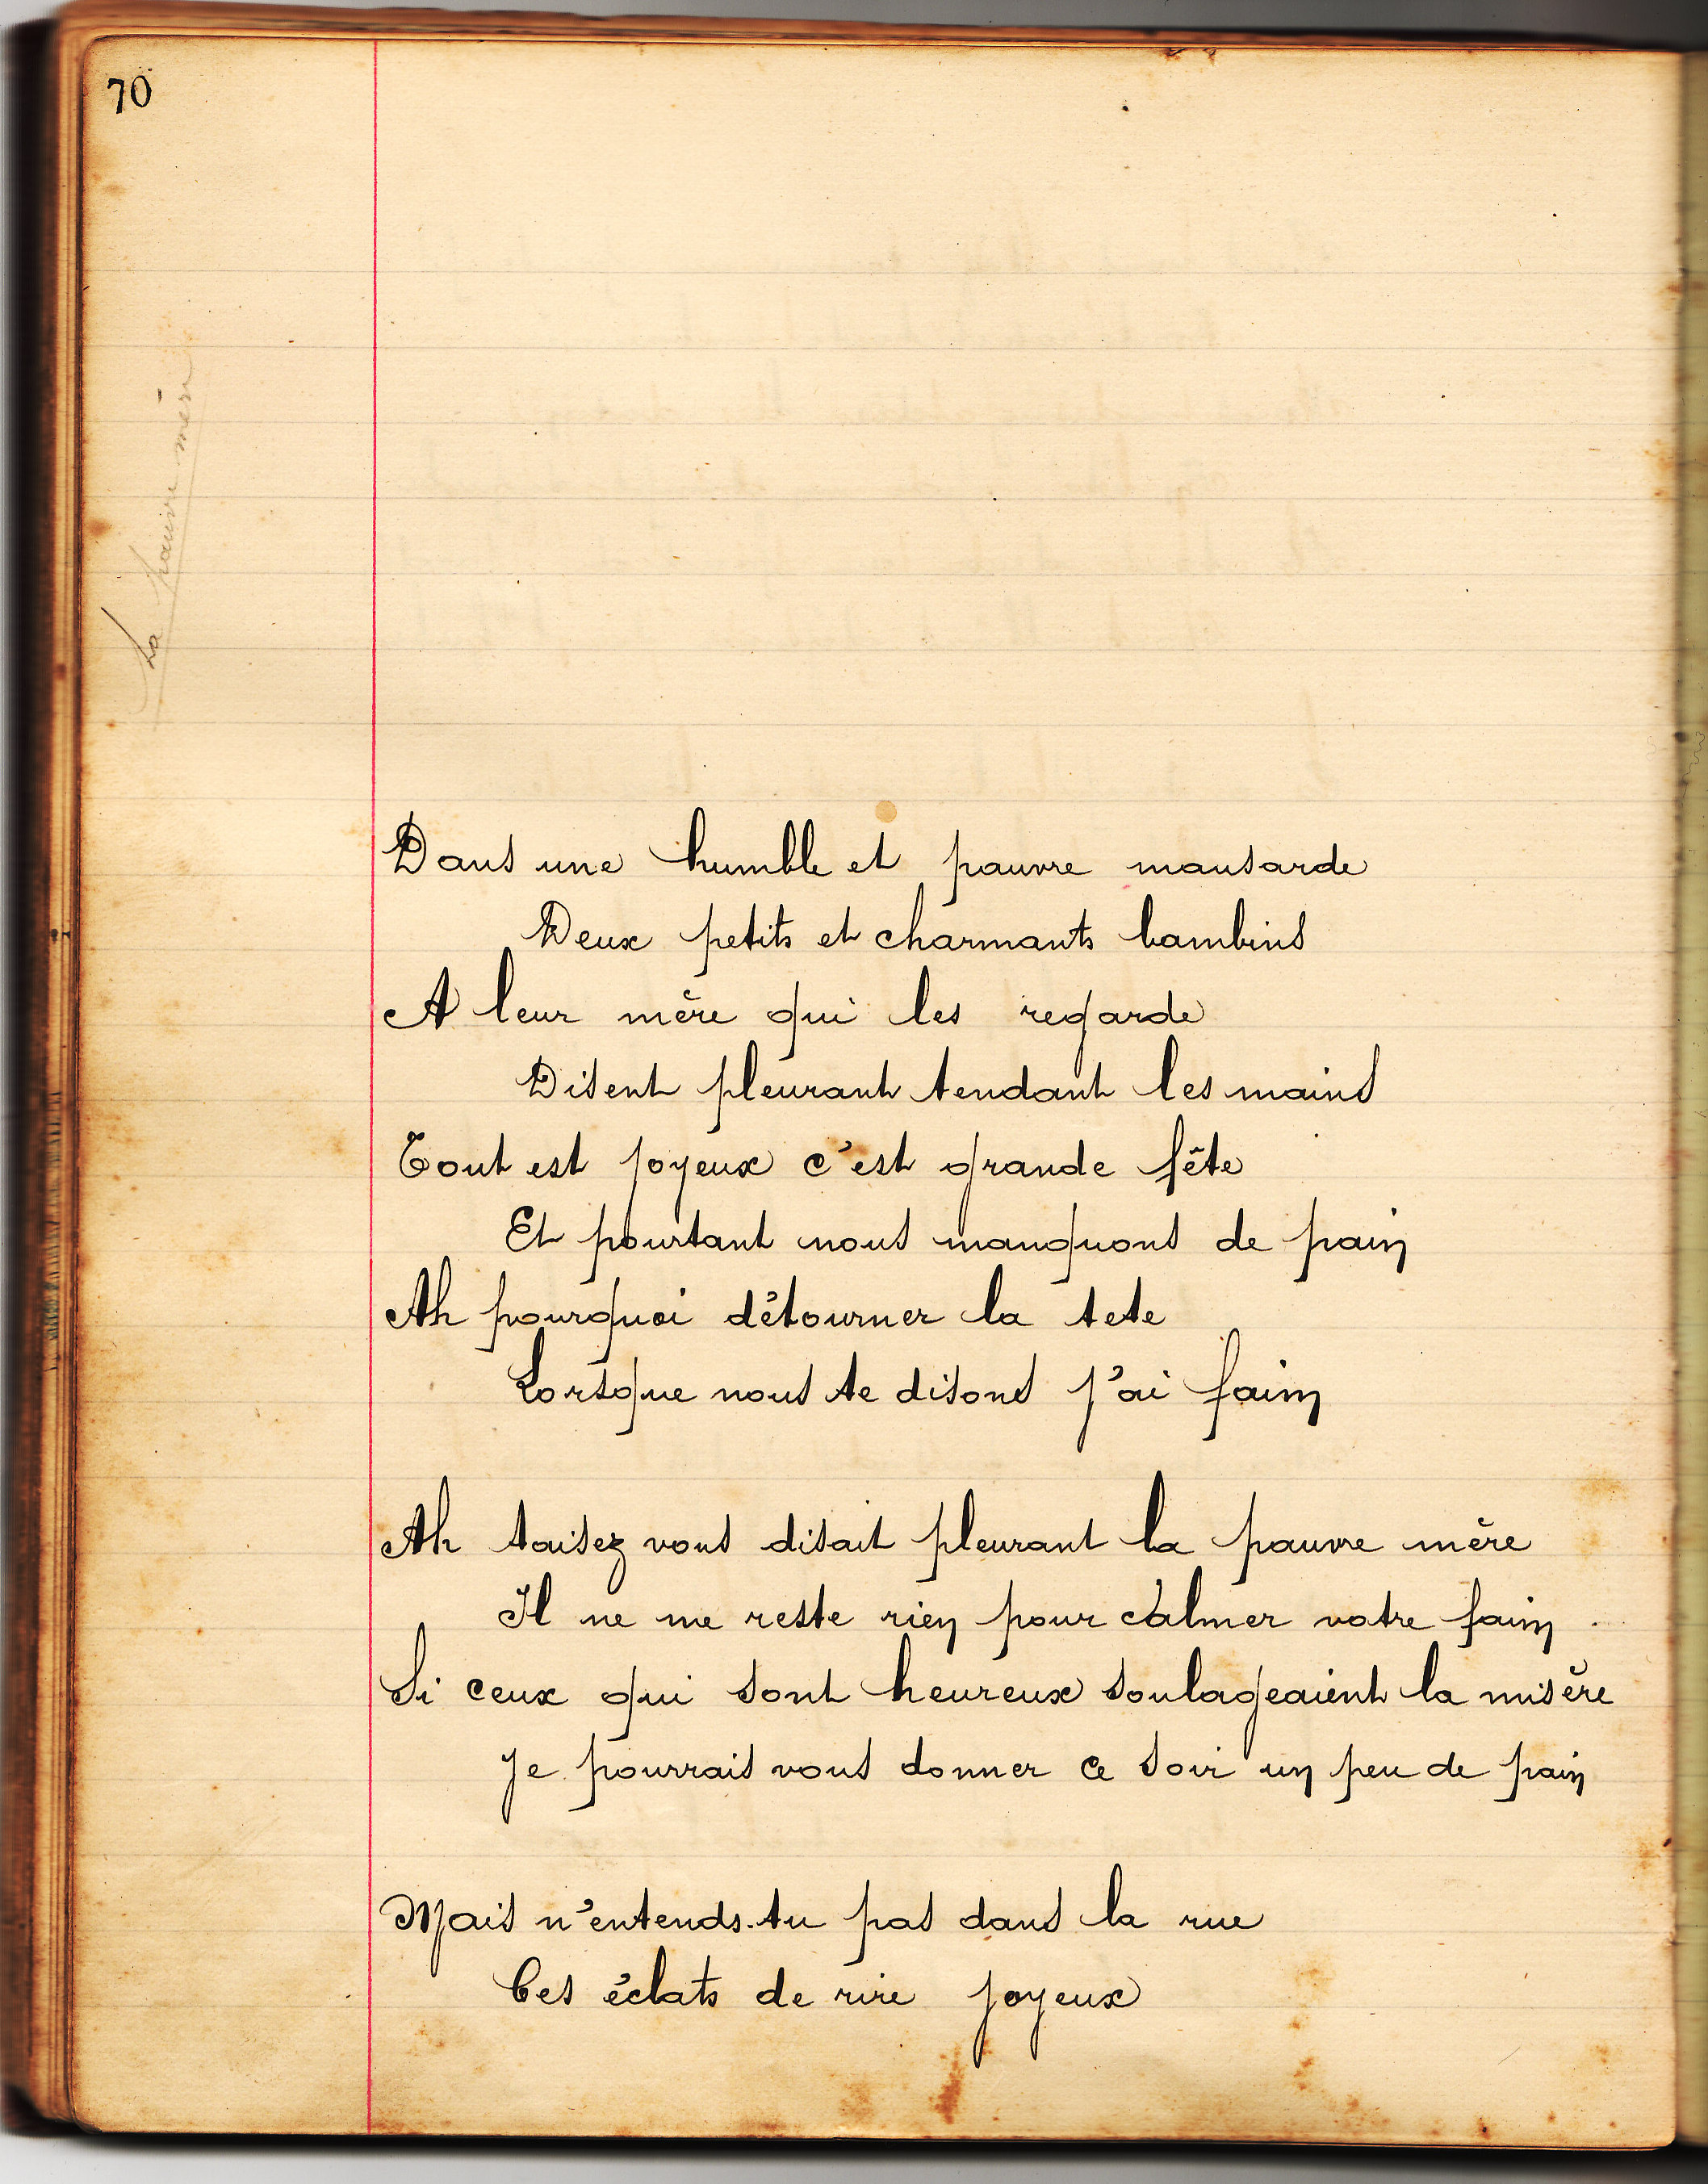 70
La pauvre mère
Dans une humble et pauvre mansarde
Deux petits et charmants bambins
A leur mère qui les regarde
Disent pleurant tendant les mains
Tout est joyeux c'est grande fête
Et pourtant nous manquons de pain
Ah pourquoi détourner la tete
Lorsque nous te disons j'ai faim
Ah taisez vous disait pleurant la pauvre mère
Il ne me reste rien pour calmer votre faim
Si ceux qui sont heureux soulageaient la misère
Je pourrais vous donner ce soir un peu de pain
Mais n'entends-tu pas dans la rue
Ces éclats de rire joyeux